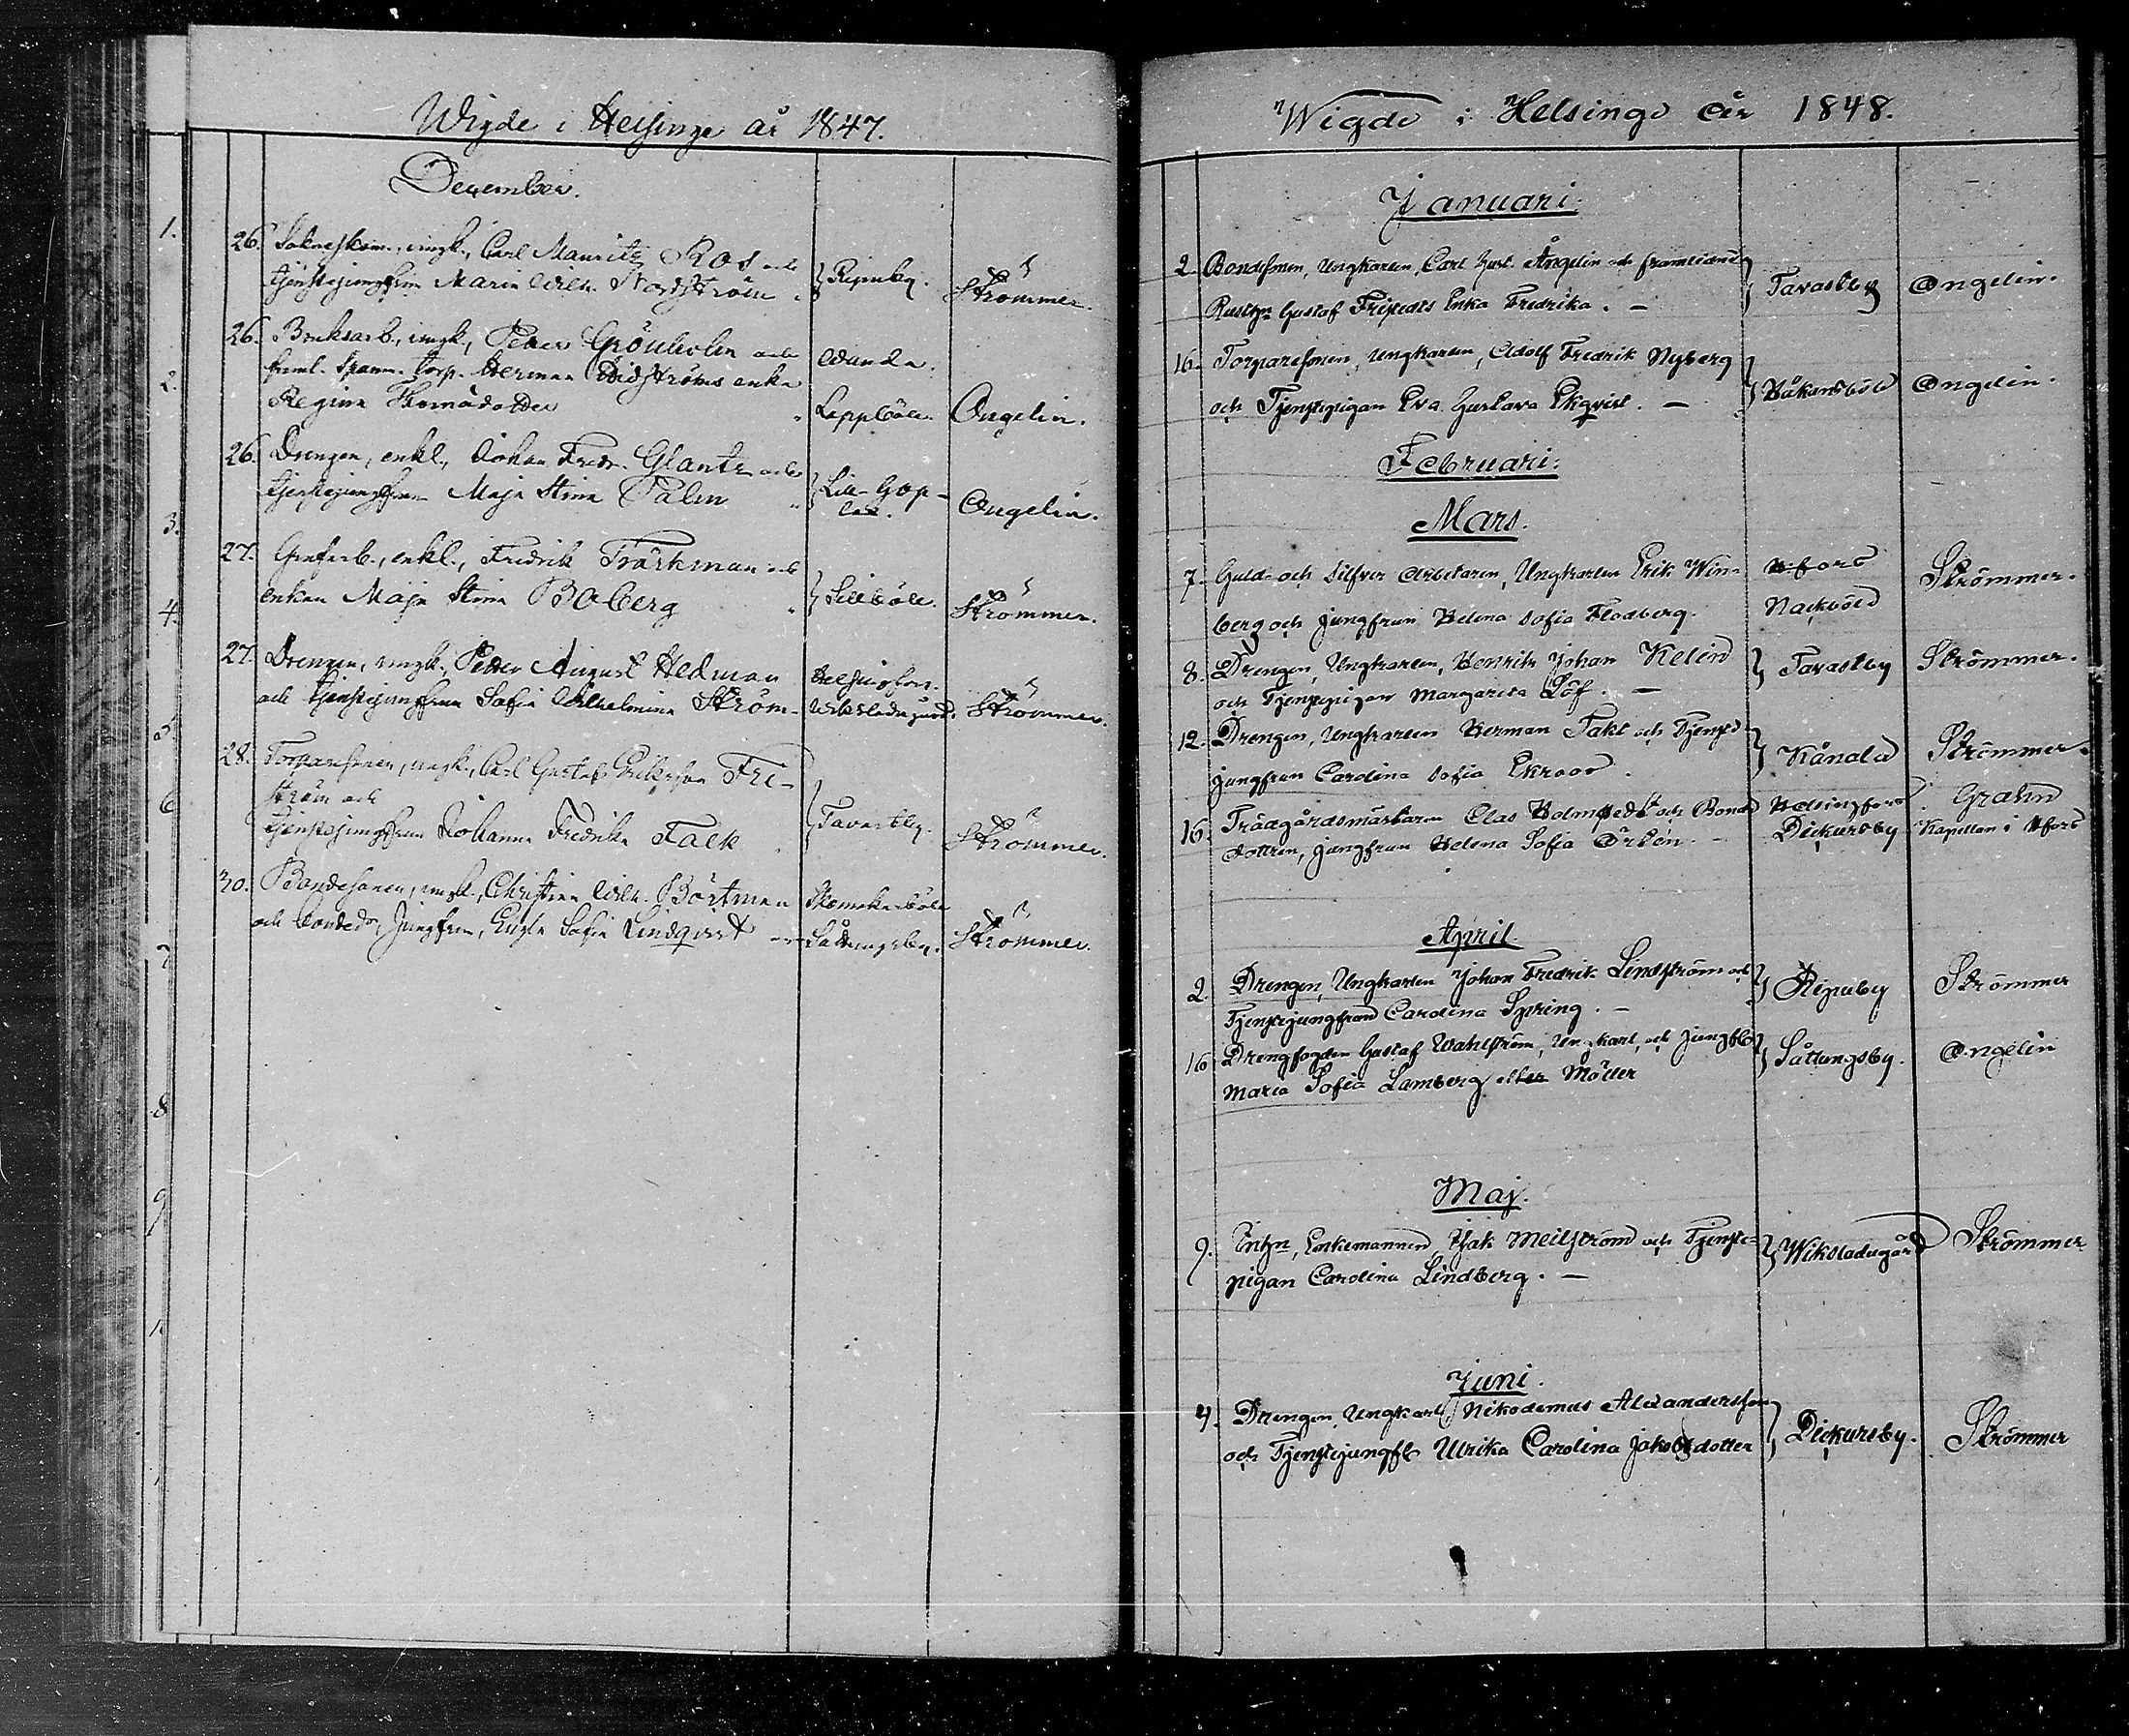 Wigde i Helsinge år 1847.
December.
26. Carl Mauritz Ros och
tjenstejungfrun Maria Wilh. Nordström } Ripuby. Strömmer.
26. Bruksarb., ungk., Petter Grönholm och Wanda.
framl. Torp. Herman Widströms enka
Regina Thomasdotter Lappböle. Angelin.
26. Drengen, enkl., Johan Fredr. Glantz och
tjenstejungfrun Maja Stina Palm } Lill-Hop-
lax. Angelin.
27. enkl., Fredrik Träskman och
enkan Maja Stina Boberg } Sillböle. Strömmer.
27. Drengen, ungk., Petter August Hedman Helsingfors.
och tjenstejungfrun Sofia Wilhelmina Ström Wiksladugård. Strömmer.
28. Torparesonen, ungk., Carl Gustaf Eriksson Fri-
ström och
tjenstejungfrun Johanna Fredrika Falk } Tavastby. Strömmer.
30. Bondesonen, ungk., Christian Wilh. Börtman
och bonded., Jungfrun, Sofia Lindqvist Såttungsby. Strömmer.
Wigde i Helsinge år 1848.
Januari.
2. Bondesonen, Ungkarlen, Carl Gust. Ångelin och framlidne
Gustaf Enka Fredrika. — } Tavastby Angelin.
16. Torparesonen, Ungkarlen, Adolf Fredrik Nyberg
och Tjenstepigan Eva Gustava Ekqvist. — } Håkansböle Angelin.
Februari.
Mars.
7. Guld- och Silfver Arbetaren, Ungkarlen Erik Win- H:fors
berg och Jungfrun Helena Sofia Flodberg. Nackböle Strömmer.
8. Drengen, Ungkarlen, Henrik Johan Kelin
och Tjenstepigan Margareta Löf. — } Tavastby Strömmer.
12. Drengen, Ungkarlen Herman Takt och Tjenste-
jungfrun Carolina Sofia Ekroos. } Kånala Strömmer.
16. Trädgårdsmästaren Clas Holmstedt och Bonde Helsingfors. Grahn
dottren, Jungfrun Helena Sofia Örtén. — Dickursby Kapellan i H:fors
April.
2. Drengen, Ungkarlen Johan Fredrik Lindström och
Tjenstejungfrun Carolina Spring. — } Ripuby Strömmer
16. Drengfogden Gustaf Wahlström, Ungkarl, och Jungfr.
Maria Sofia Lamberg eller Möller } Såttungsby. Angelin
Maj.
9. Enkemannen Isak Meilström och Tjenste-
pigan Carolina Lindberg. — } Wiksladugård Strömmer
Juni.
4. Drengen, Ungkarl, Nikodemus Alexandersson
och Tjenstejungfr. Ulrika Carolina Jakobsdotter } Dickursby. Strömmer